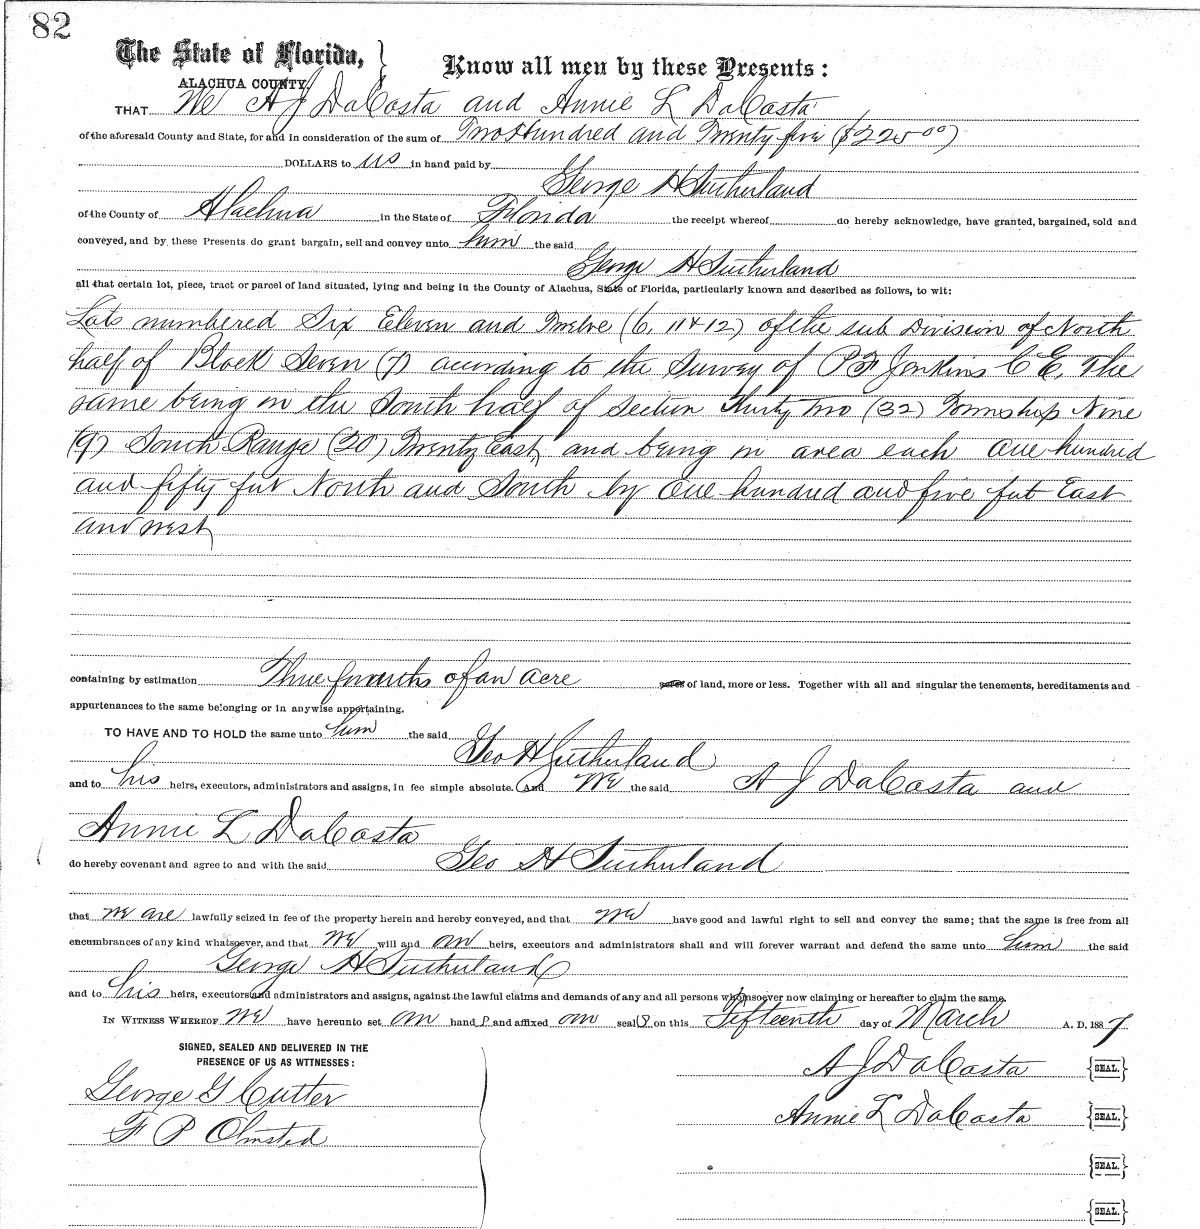 82
The State of Florida, } Know all men by these Presents:
ALACHUA COUNTY.
THAT We A J DaCosta and Annie L DaCosta
of the aforesaid County and State, for and in consideration of the sum of Two Hundred and Twenty five ($225 00)
DOLLARS to us in hand paid by
George H Sutherland
of the County of Alachua in the State of Florida the receipt whereof do hereby acknowledge, have granted, bargained, sold and
conveyed, and by these Presents do grant bargain, sell and convey unto him the said
George H Sutherland
all that certain lot, piece, tract or parcel of land situated, lying and being in the County of Alachua, State of Florida, particularly known and described as follows, to wit:
Lots numbered Six Eleven and Twelve (6, 11 & 12) of the sub Division of North
half of Block Seven (7) according to the Survey of P F Jenkins C E, The
same being in the South half of Section Thirty Two (32) Township Nine
(9) South Range (20) Twenty East, and being in area each One hundred
and fifty feet North and South by One hundred and five feet East
and West
containing by estimation Three fourths of an acre acres of land, more or less. Together with all and singular the tenements, hereditaments and
appurtenances to the same belonging or in anywise appertaining.
TO HAVE AND TO HOLD the same unto him the said
Geo H Sutherland
and to his heirs, executors, administrators and assigns, in fee simple absolute. And We the said A J DaCosta and
Annie L DaCosta
do hereby covenant and agree to and with the said Geo H Sutherland
that we are lawfully seized in fee of the property herein and hereby conveyed, and that we have good and lawful right to sell and convey the same; that the same is free from all
encumbrances of any kind whatsoever, and that We will and our heirs, executors and administrators shall and will forever warrant and defend the same unto him the said
George H Sutherland
and to his heirs, executors and administrators and assigns, against the lawful claims and demands of any and all persons whomsoever now claiming or hereafter to claim the same.
IN WITNESS WHEREOF We have hereunto set our hand s and affixed our seal s on this Fifteenth day of March A. D. 1887
SIGNED, SEALED AND DELIVERED IN THE
PRESENCE OF US AS WITNESSES:
A J DaCosta {SEAL.}
George G Cutter
Annie L DaCosta {SEAL.}
F P Olmsted
{SEAL.}
{SEAL.}